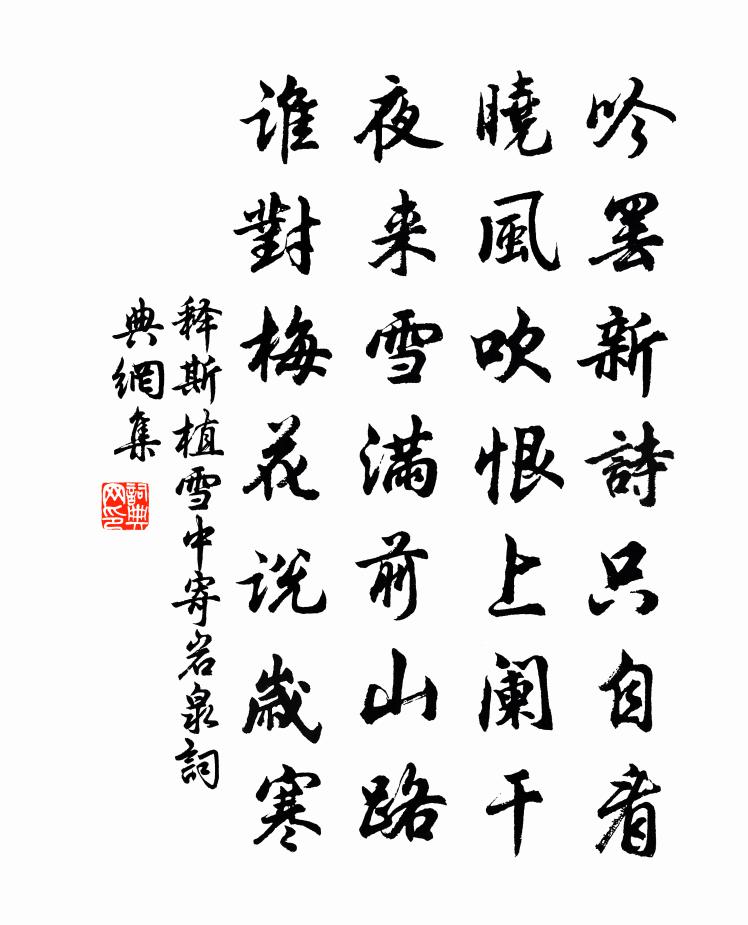 吟罢新詩只自看
曉風吹恨上阑干
夜来雪滿前山路
誰對梅花说歲寒
释斯植雪中寄岩泉詞
典網集
詞典
网印